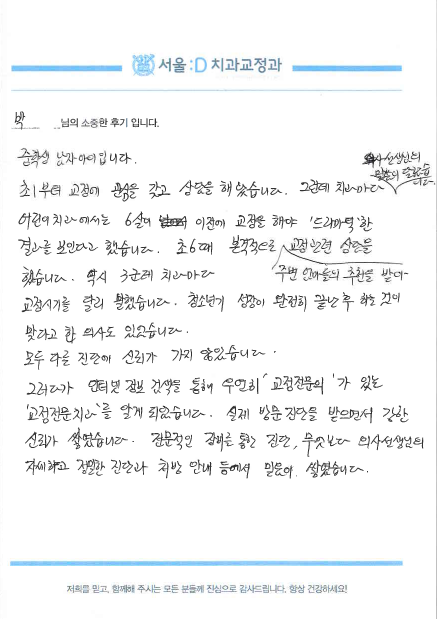 서울:D 치과교정과
박 님의 소중한 후기 입니다.
중학생 남자아이입니다.
초1부터 교정에 관심을 갖고 상담을 해 왔습니다. 그런데 치과마다 의사선생님의 말씀이 달랐습니다.
어린이치과에서는 6살이 이전에 교정을 해야 '드라마틱'한
결과를 보인다고 했습니다. 초6때 본격적으로 교정관련 상담을
했습니다. 역시 3군데 치과마다 주변 엄마들의 추천을 받아
교정시기를 달리 말했습니다. 청소년기 성장이 완전히 끝난 후 하는 것이
맞다고 한 의사도 있었습니다.
모두 다른 진단에 신뢰가 가지 않았습니다.
그러다가 인터넷 정보 검색을 통해 우연히 '교정전문의'가 있는
'교정전문치과'를 알게 되었습니다. 실제 방문 진단을 받으면서 강한
신뢰가 쌓였습니다. 전문적인 장비를 통한 진단, 무엇보다 의사선생님의
자세하고 정밀한 진단과 처방 안내 등에서 믿음이 쌓였습니다.
저희를 믿고, 함께해 주시는 모든 분들께 진심으로 감사드립니다. 항상 건강하세요!